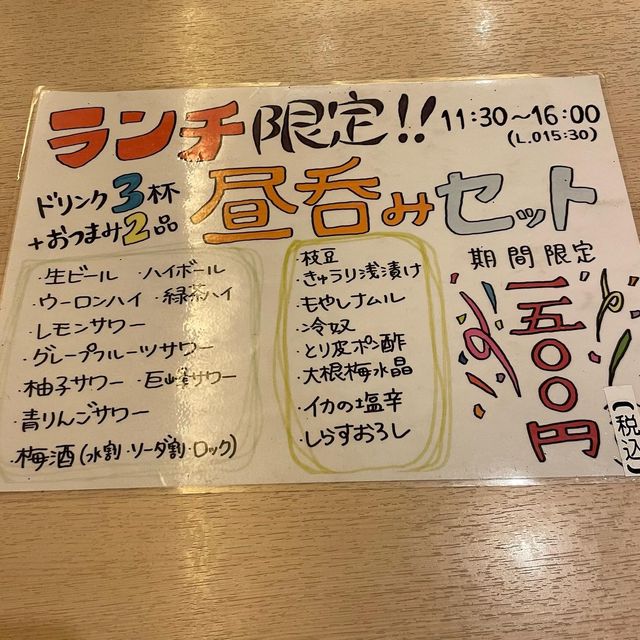 ランチ限定!! 11:30～16:00
(L.O15:30)
ドリンク3杯
+おつまみ2品
昼呑みセット
・生ビール ・ハイボール
・ウーロンハイ ・緑茶ハイ
・レモンサワー
・グレープフルーツサワー
・柚子サワー ・巨峰サワー
・青りんごサワー
・梅酒(水割・ソーダ割・ロック)
・枝豆
・きゅうり浅漬け
・もやしナムル
・冷奴
・とり皮ポン酢
・大根梅水晶
・イカの塩辛
・しらすおろし
期間限定
一五〇〇円
(税込)